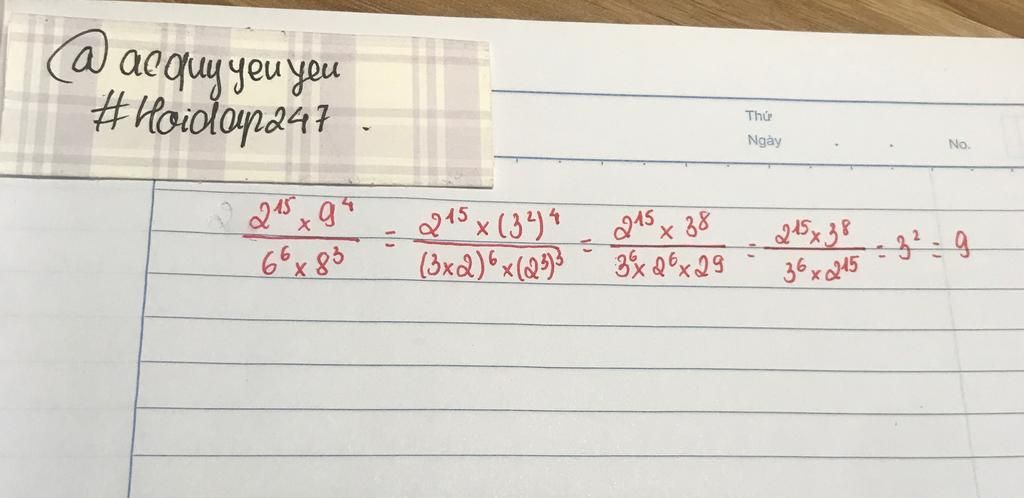 @ acquyyeuyeu
#Hoidap247.
Thứ
Ngày . . No.
2¹⁵ × 9⁴ / 6⁶ × 8³ = 2¹⁵ × (3²)⁴ / (3×2)⁶ × (2³)³ = 2¹⁵ × 38 / 3⁶ × 2⁶ × 29 = 2¹⁵ × 3⁸ / 3⁶ × 2¹⁵ = 3² = 9